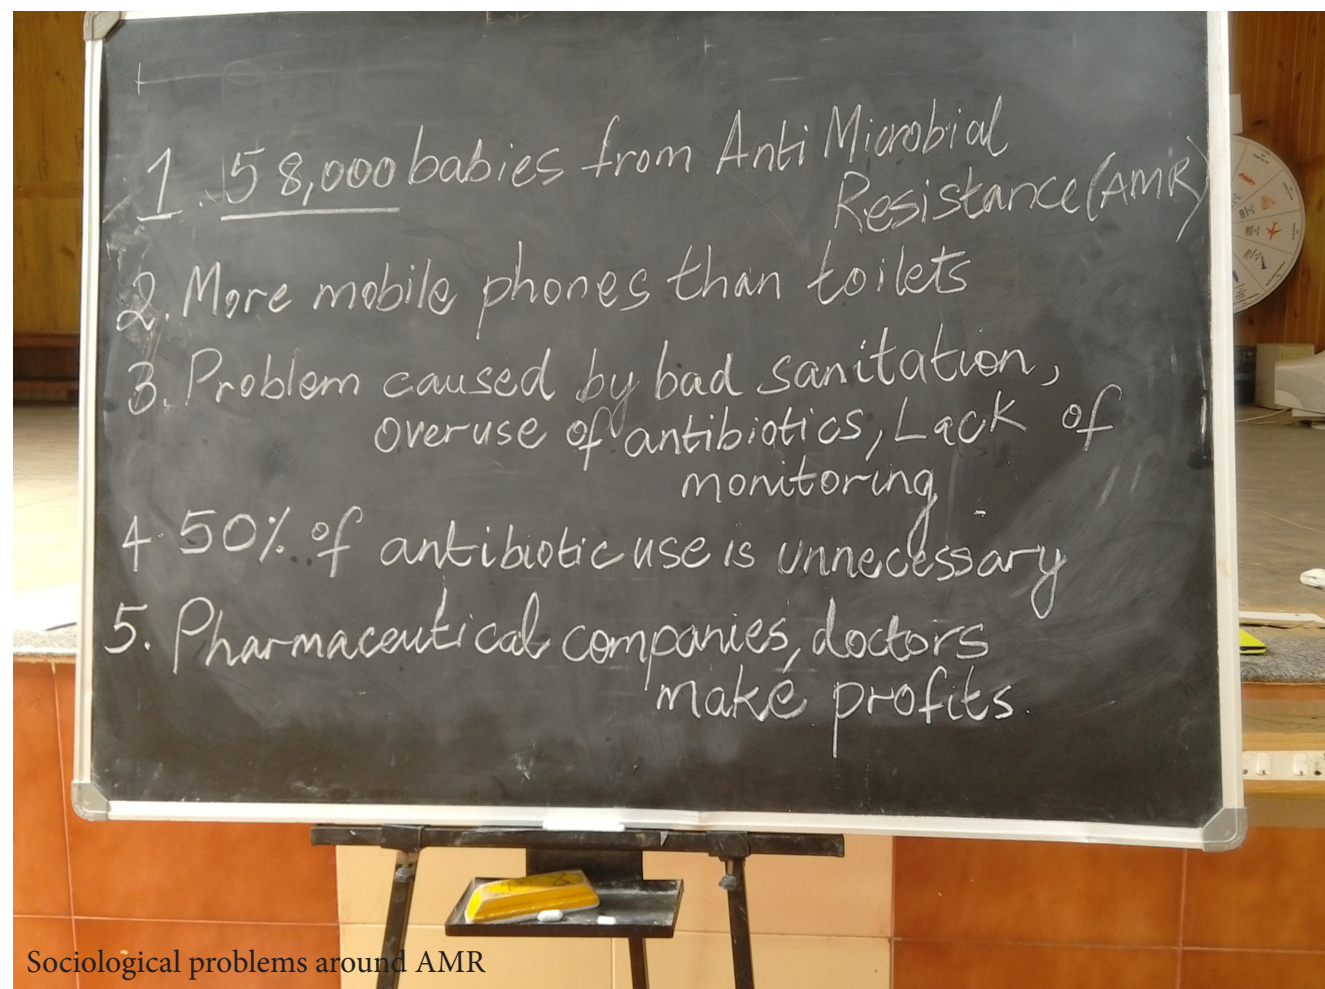 1. 58,000 babies from Anti Microbial
Resistance (AMR)
2. More mobile phones than toilets
3. Problem caused by bad sanitation,
overuse of antibiotics, Lack of
monitoring
4. 50% of antibiotic use is unnecessary
5. Pharmaceutical companies, doctors
make profits.
Sociological problems around AMR